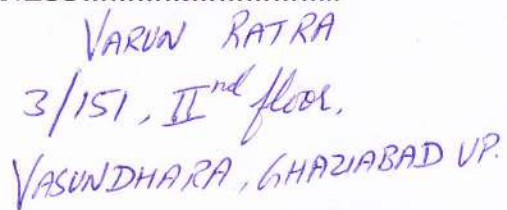 VARUN RATRA
3/151, IInd floor.
VASUNDHARA, GHAZIABAD UP.